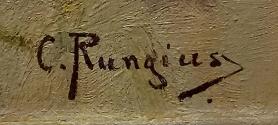 C. Rungius